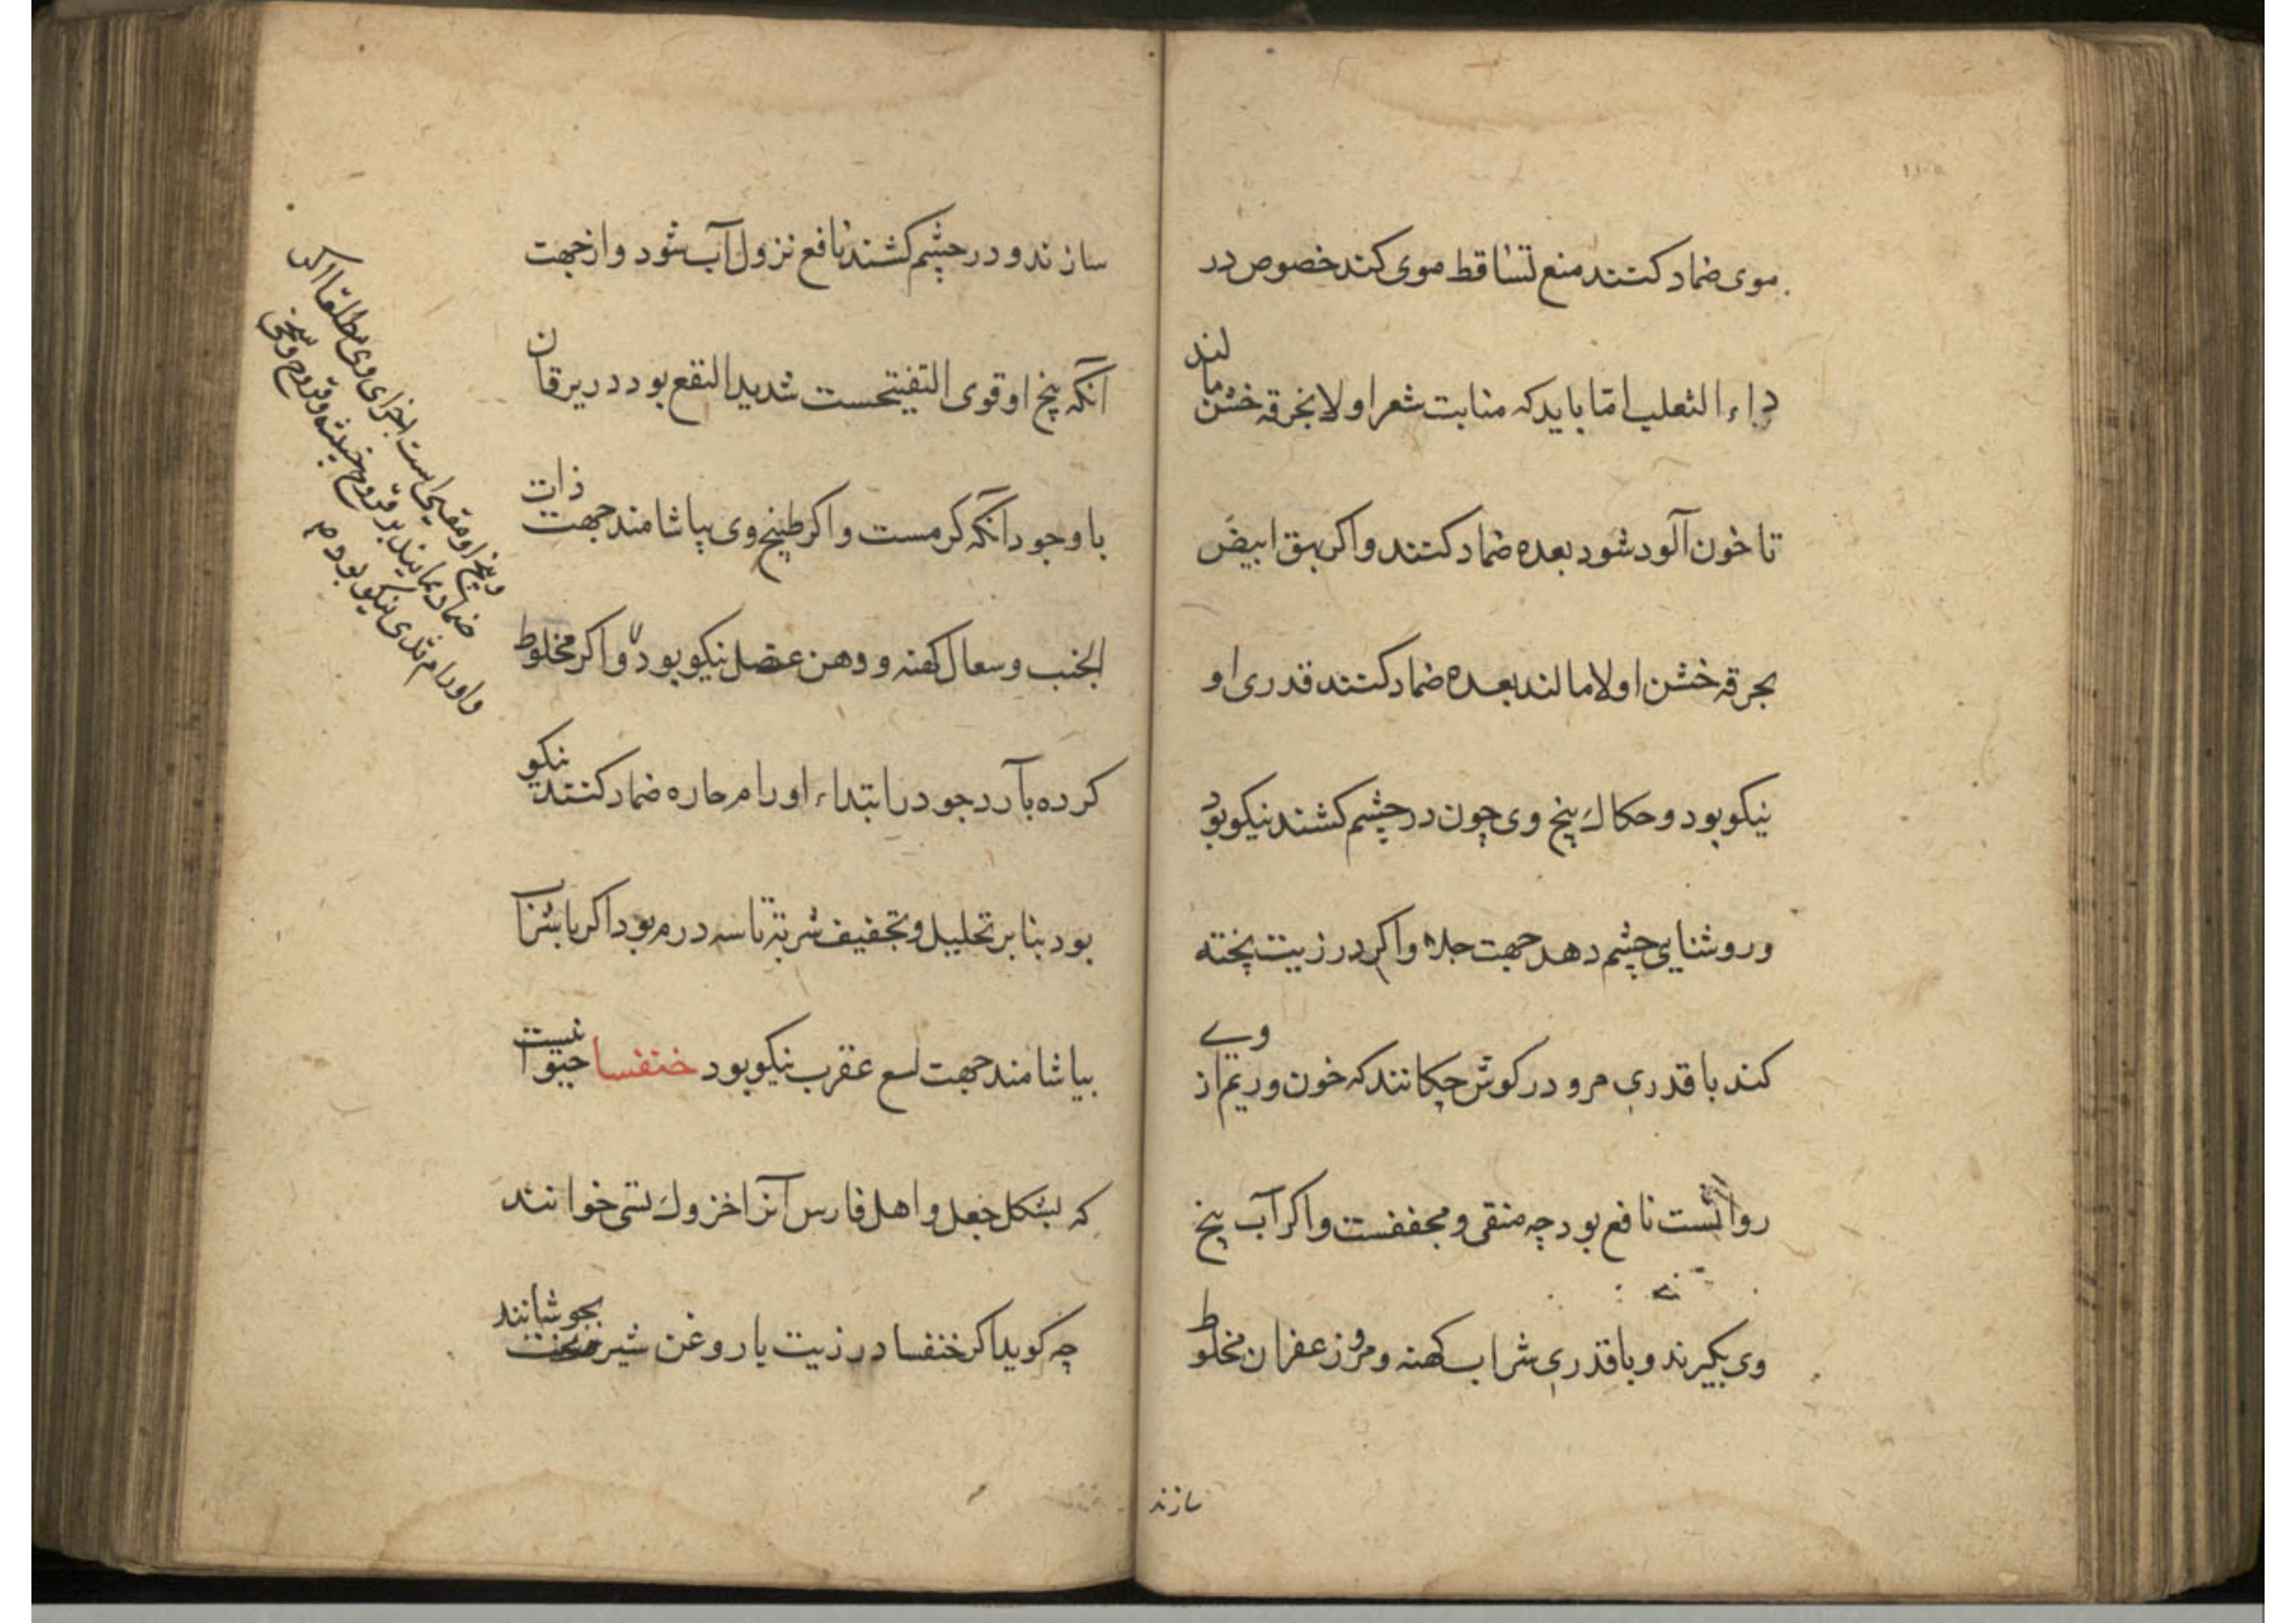 موی ضماد کنند منع تساقط موی کند خصوص در
داء الثعلب امّا باید که منابت شعر اولا بخرقه خشن مالند
تا خون آلود شود بعده ضماد کنند واکر بهق ابیض
بخرقه خشن اولا مالند بعده ضماد کنند قدری او
نیکو بود و حکاك بیخ وی چون در چشم کشند نیکو بود
و روشنایی چشم دهد جهت جلاء واکر در زیت پخته
کند با قدری مرو در کوش چکانند که خون و ریم از وی
روانست نافع بود چه منقی و مجففست واکر آب بیخ
وی بکیرند و با قدری شراب کهنه و مر و زعفران مخلوط
سازند
سازند و در چشم کشند نافع نزول آب شود و از جهت
آنکه بیخ او قوی التفیتحست شدید النفع بود در یرقان
با وجود آنکه کرمست و اکر طبیخ وی بیاشامند جهت ذات
الجنب و سعال کهنه و وهن عضل نیکو بود و اکر مخلوط
کرده بآرد جو در ابتداء اورام حاره ضماد کنند نیکو
بود بنا بر تحلیل و تجفیف شربة تا سه درم بود اکر با شراب
بیاشامند جهت لسع عقرب نیکو بود خنفسا حیوانیست
که بشکل جعل و اهل فارس آنرا خزوك تسی خوانند
چه کوید اکر خنفسا در زیت یا روغن شیر بجوشانند
و بیخ او مقیی است اجزای وی مطلقا اکر
ضماد نمایند بر قروح خبیثه و قروح
و اورام ثدی نیکو بود